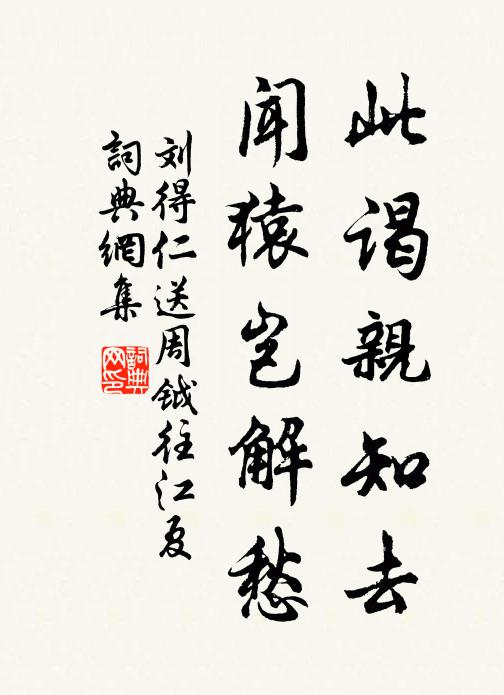 此谒親知去
聞猿豈解愁
刘得仁送周鉞往江夏
詞典網集
詞典
网印